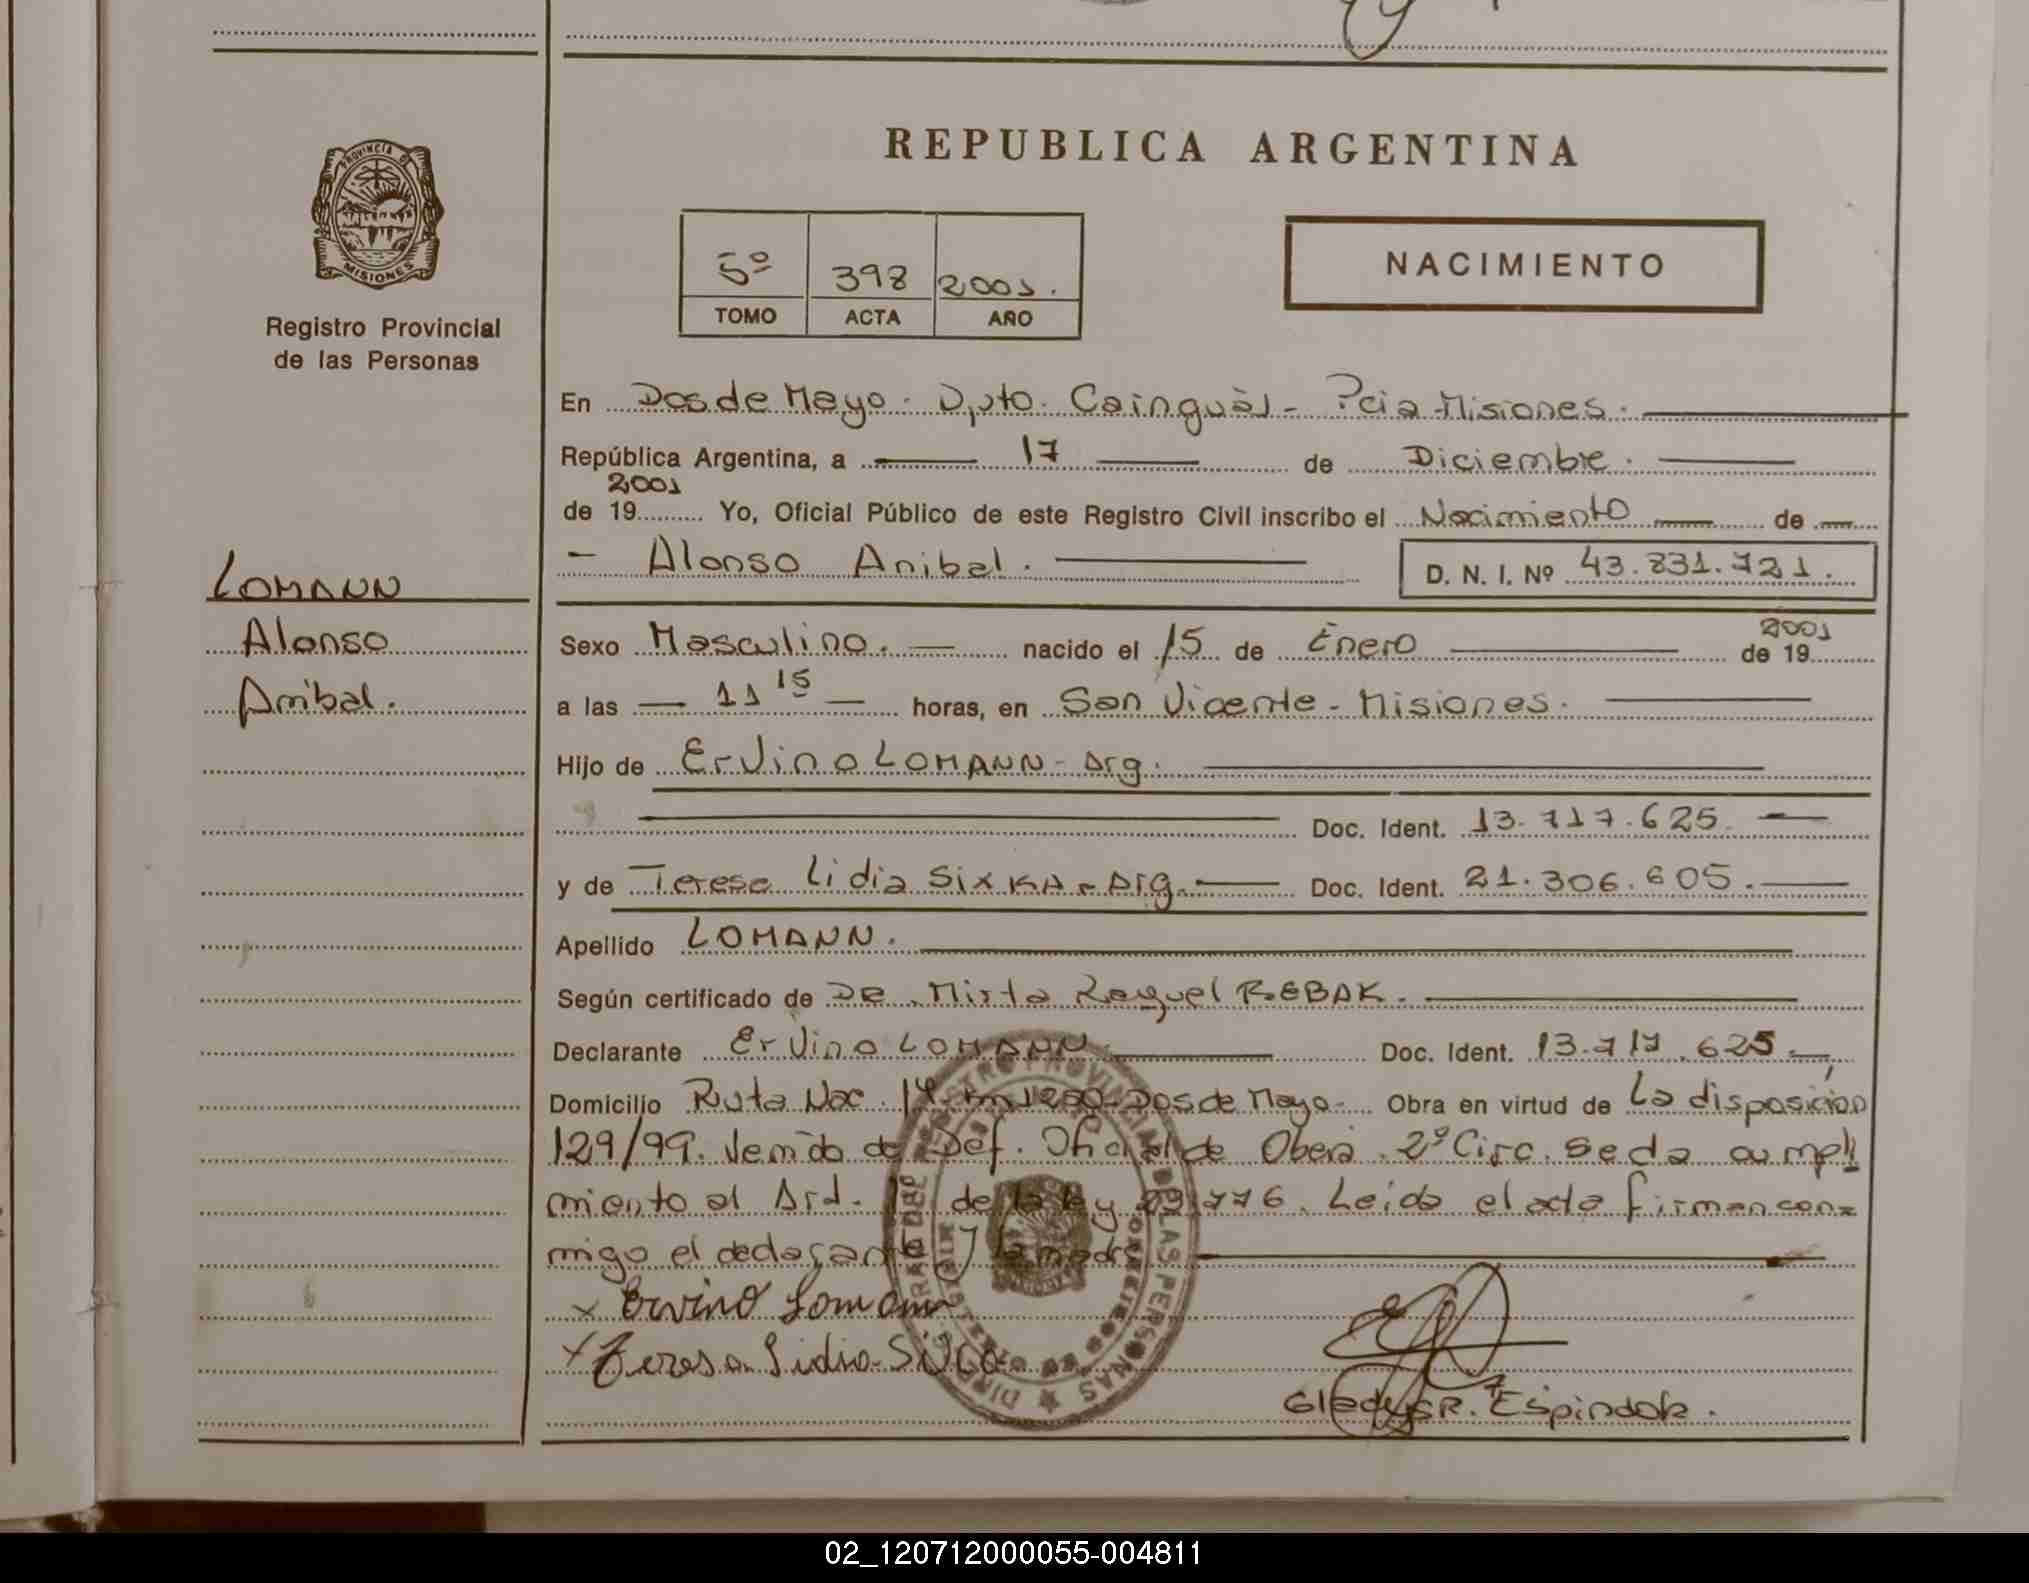 REPUBLICA ARGENTINA
PROVINCIA D
MISIONES
Registro Provincial
de las Personas
5º 398 2001.
TOMO ACTA AÑO
NACIMIENTO
En Dos de Mayo. Dpto. Cainguàs - Pcia Misiones.
República Argentina, a 17 de Diciembre.
2001
de 19 Yo, Oficial Público de este Registro Civil inscribo el Nacimiento de
- Alonso Anibal. D. N. I. Nº 43.831.721.
LOMANN
Alonso
Anibal.
Sexo Masculino. nacido el 15 de Enero de 19 2001
a las 11 15 horas, en San Vicente - Misiones.
Hijo de Ervino LOMANN - Arg.
Doc. Ident. 13.717.625
y de Teresa Lidia SixKA - Arg. Doc. Ident. 21.306.605.
Apellido LOMANN.
Según certificado de DR. Mirta Raquel REBAK.
Declarante Ervino LOMANN Doc. Ident. 13.717.625
Domicilio Ruta Nac. 14 Dos de Mayo Obra en virtud de La disposición
129/99. Venida de Def. Oficial de Oberá 2º Circ. se da cumpli
miento al Ard. de la ley Leida el acta firman con=
migo el declarante y la madre
x Ervino Lomann
x Teresa Lidia
Gladys R. Espindola.
REGISTRO PROVINCIAL DE LAS PERSONAS
02_120712000055-004811